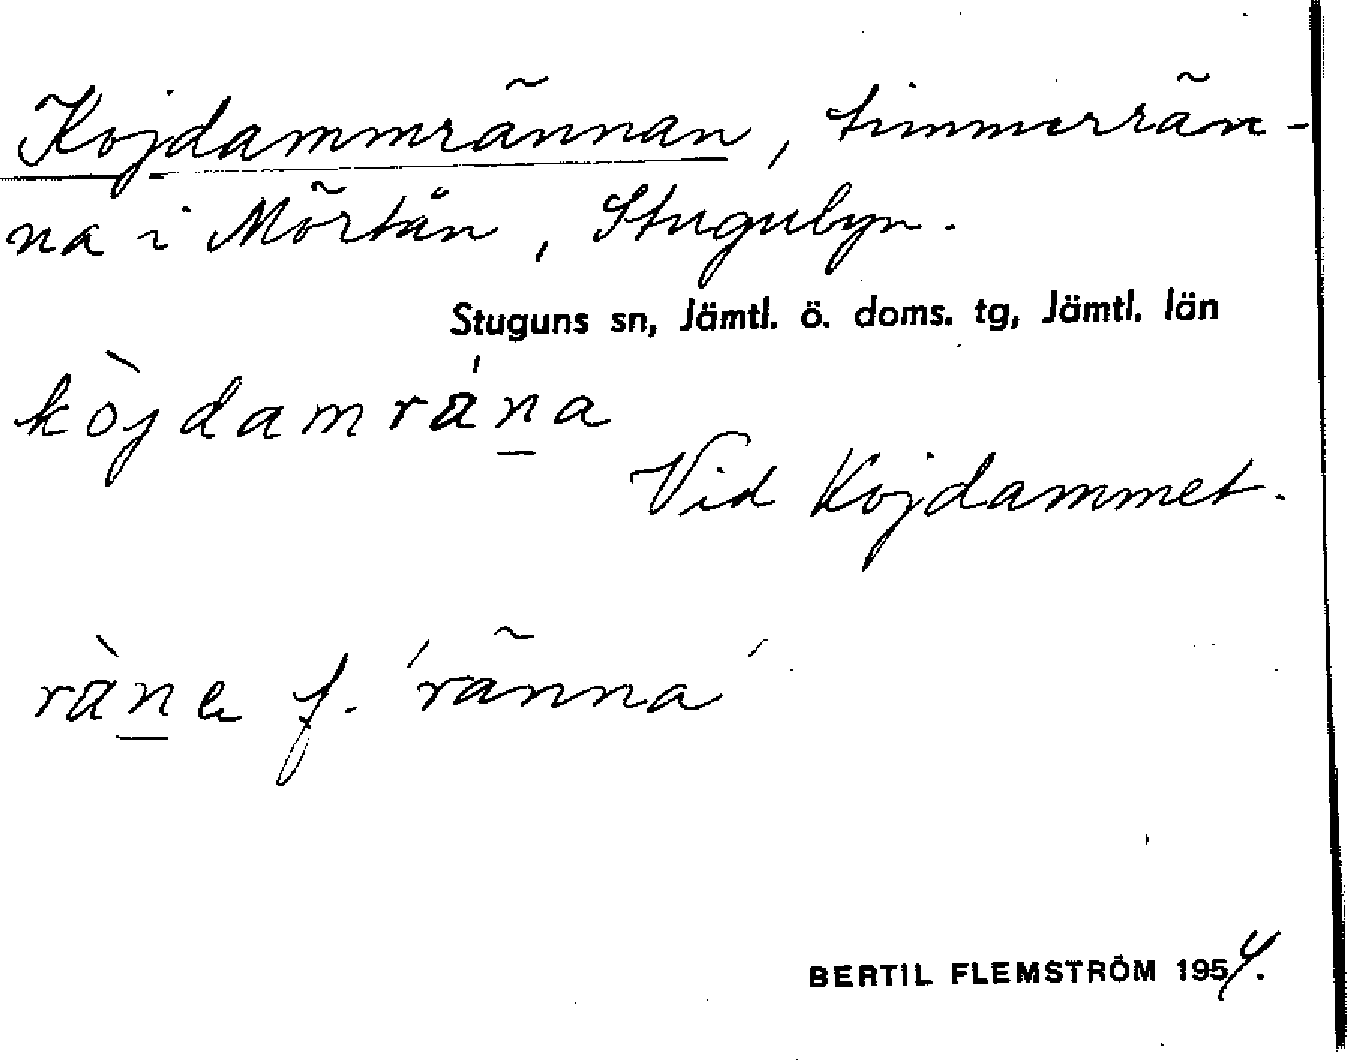 Kojdammrännan, timmerrän-
na i Mörtån, Stugubyn.
Stuguns sn, Jämtl. ö. doms. tg, Jämtl. län
kòjdamráṉa
Vid Kojdammet.
ràṉe f. 'ränna'
BERTIL FLEMSTRÖM 1954.